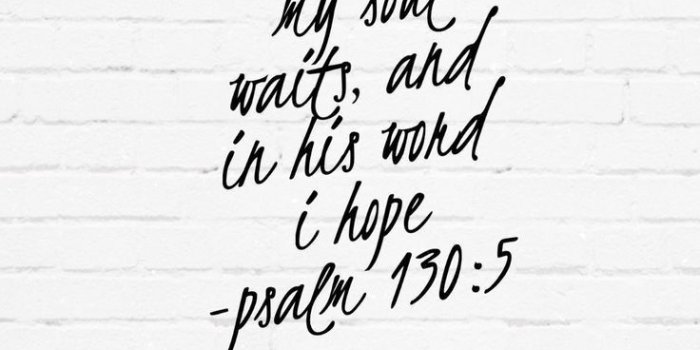 my soul
waits, and
in his word
i hope
-psalm 130:5